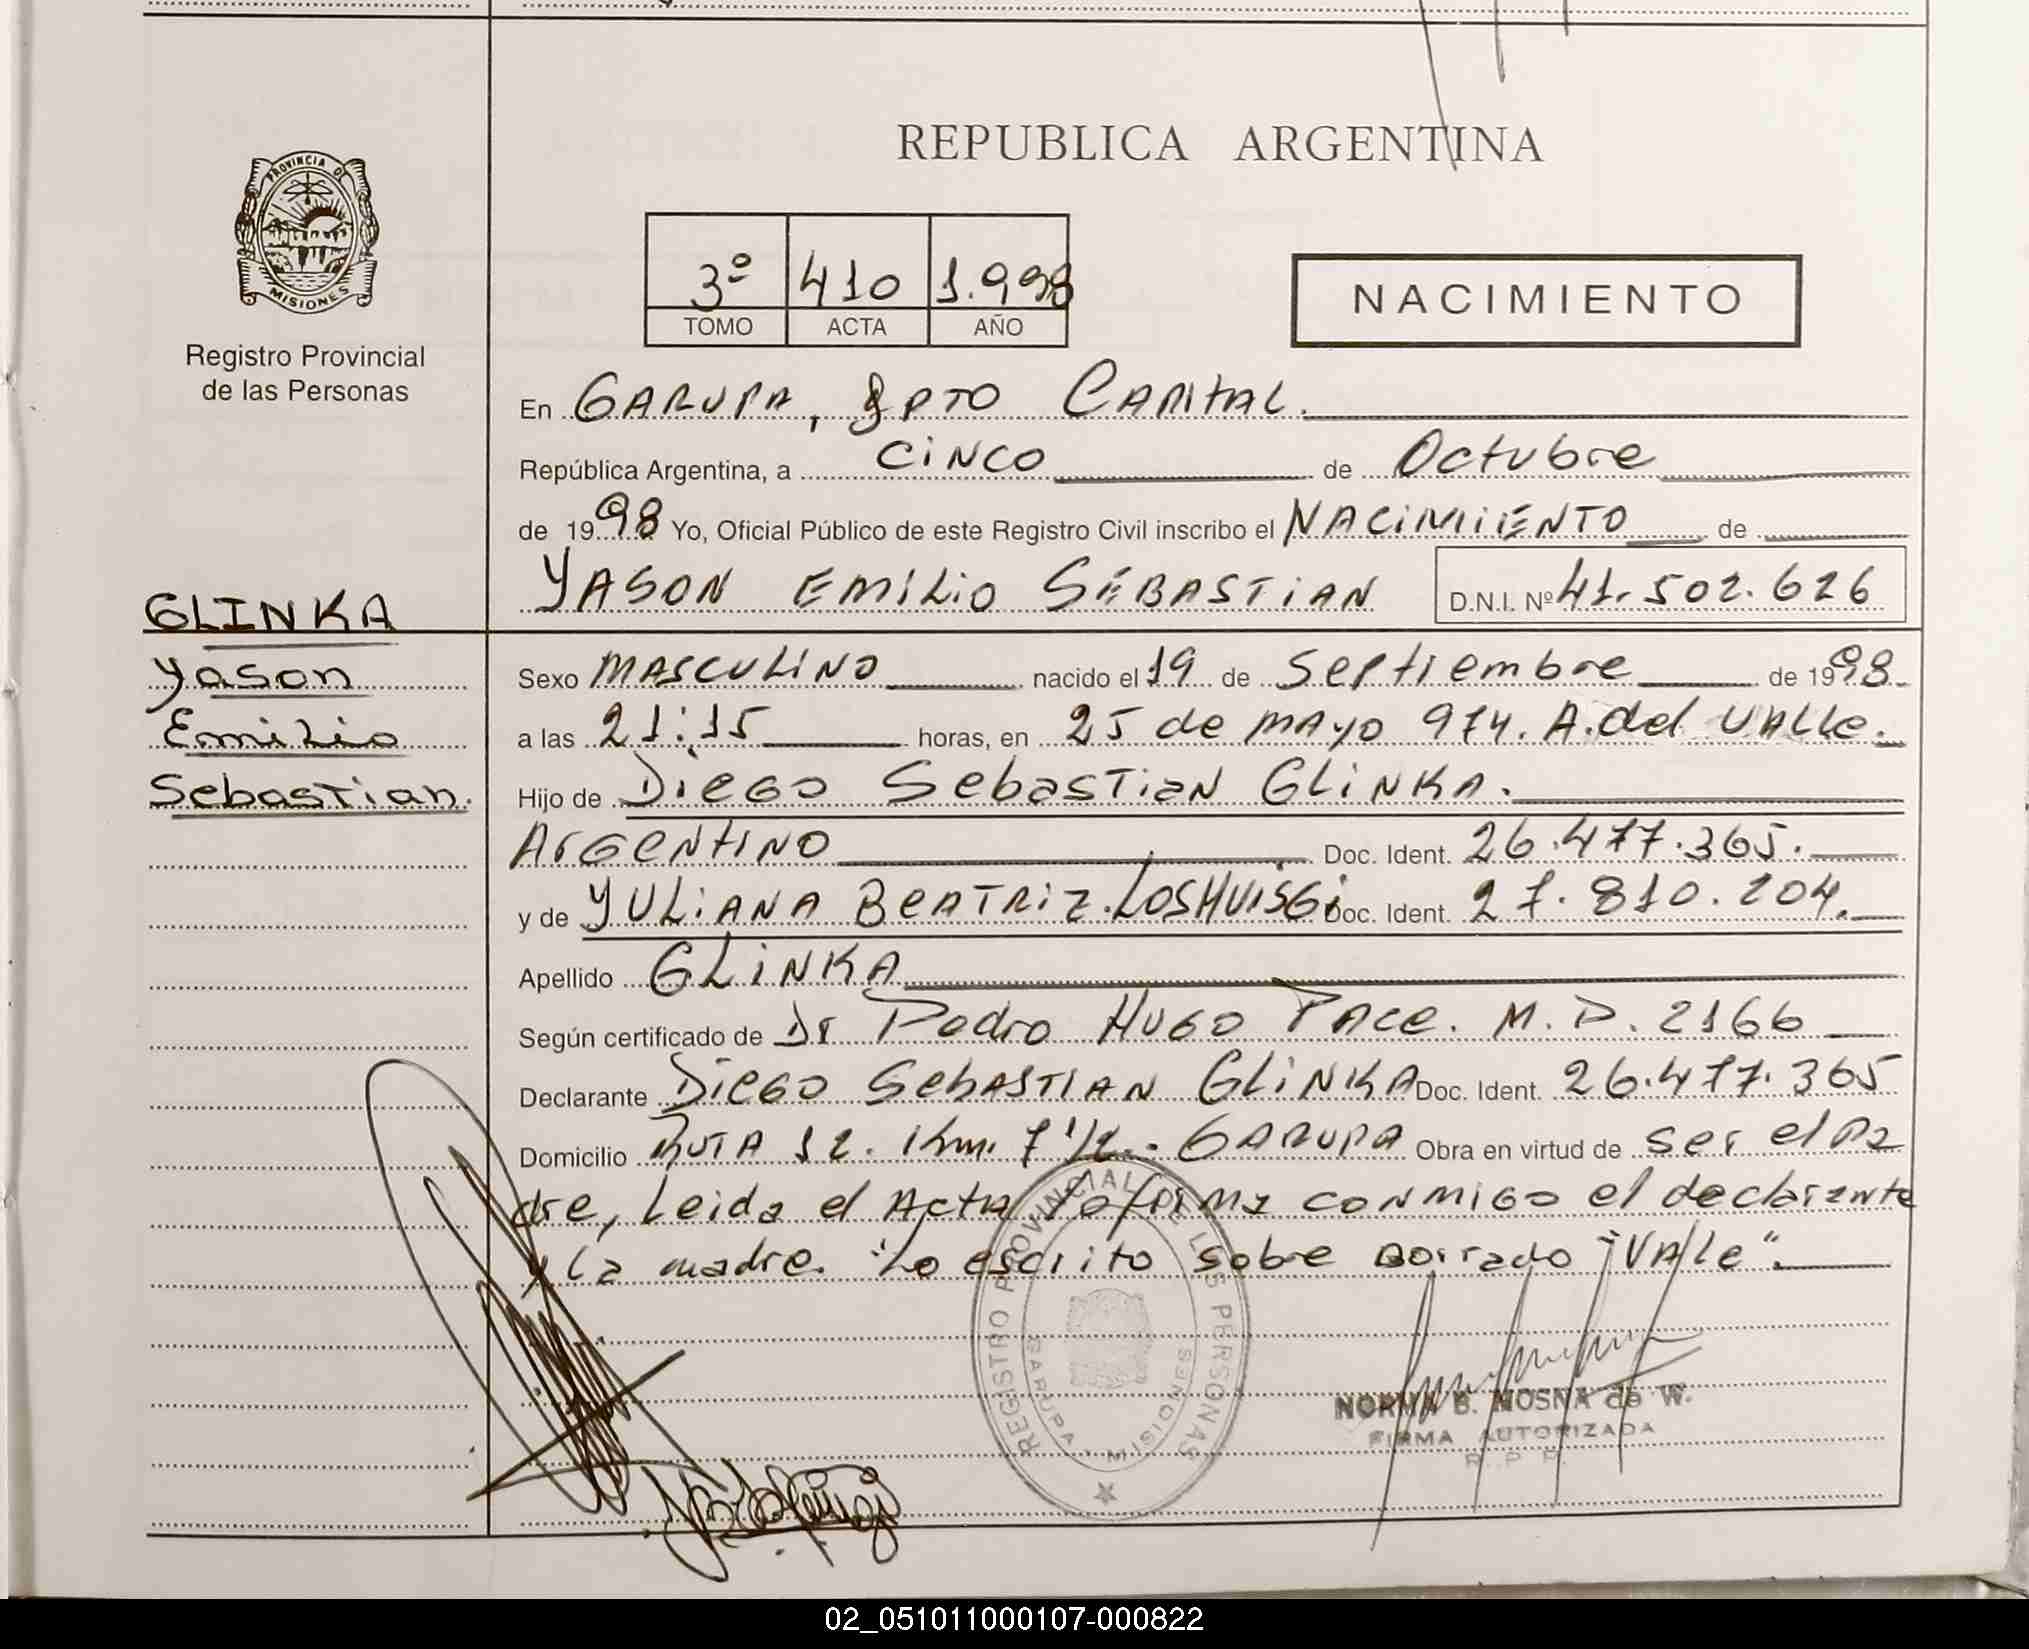 REPUBLICA ARGENTINA
PROVINCIA DE
MISIONES
Registro Provincial
de las Personas
3º 410 1.998
TOMO ACTA AÑO
NACIMIENTO
En GARUPA, Dpto CAPITAL.
República Argentina, a CINCO de Octubre
de 1998 Yo, Oficial Público de este Registro Civil inscribo el NACIMIENTO de
YASON EMILIO SEBASTIAN D.N.I. Nº 41.502.626
GLINKA
Yason
Emilio
Sebastian.
Sexo MASCULINO nacido el 19 de Septiembre de 1998.
a las 21:15 horas, en 25 de mayo 974. A. del VALLe.
Hijo de Diego Sebastian GLINKA.
Argentino Doc. Ident. 26.477.365.
y de YULIANA BEATRIZ LOSHUISGi Doc. Ident. 27.810.204.
Apellido GLINKA
Según certificado de Dr Pedro Hugo PACe. M.P. 2166
Declarante Diego SebASTIAN GLINKA Doc. Ident. 26.477.365
Domicilio RUTA 12. Km. 7 1/2.- GARUPA Obra en virtud de ser el Pa
dre, Leida el Acta La firma conmigo el declarante
y la madre. "Lo escrito sobre Borrado "VAlle".
REGISTRO PROVINCIAL DE LAS PERSONAS
GARUPA - MISIONES
NORMA B. NOSNA de W.
FIRMA AUTORIZADA
R. P. P.
02_051011000107-000822